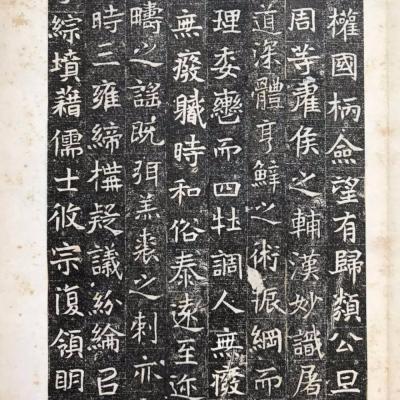 權國柄僉望有歸類公旦
周等霍侯之輔漢妙識屠
道深體亨鮮之術振綱而
理委轡而四牡調人無廢
無廢職時和俗泰遠至迩
疇之謡既弭羔裘之刺亦
時三雍締構疑議紛綸㠯
綜墳藉儒士攸宗復領明